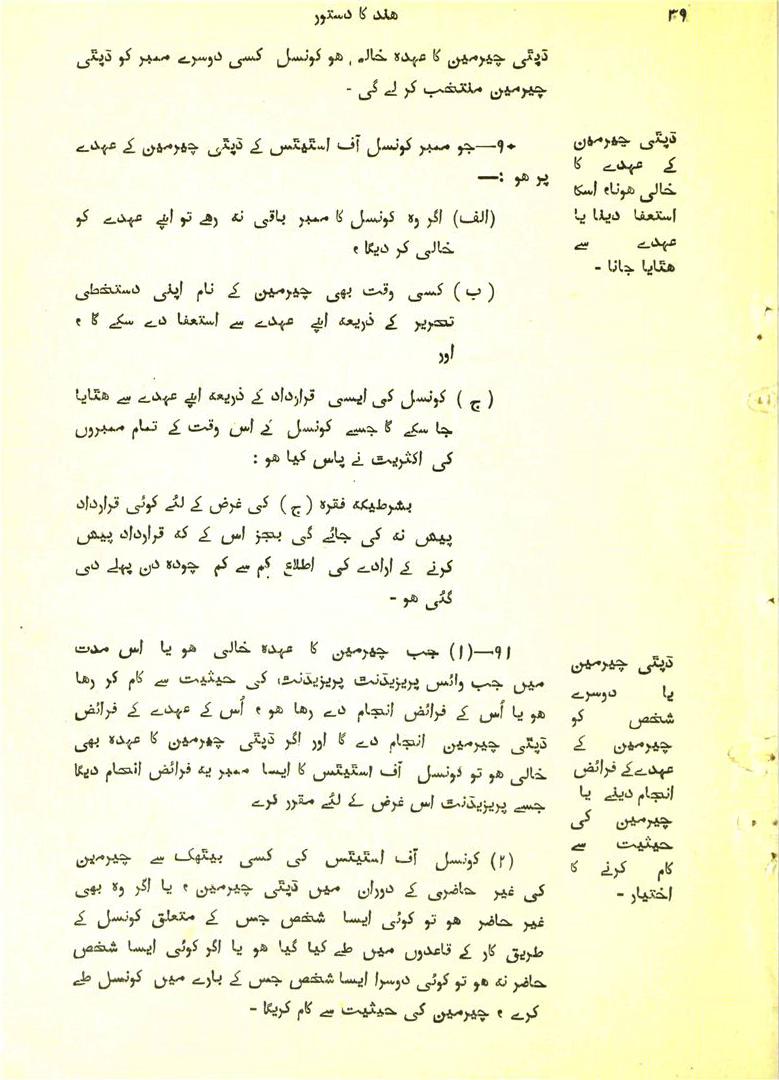 ھند کا دستور
۳۹
ڈپٹی چیرمین کا عہدہ خالی ھو کونسل کسی دوسرے ممبر کو ڈپٹی
چیرمین منتخب کر لے گی -
ڈپٹی چیرمین
کے عہدے کا
خالی ھونا، اسکا
استعفا دینا یا
عہدے سے
ھٹایا جانا -
۹۰—جو ممبر کونسل آف اسٹیٹس کے ڈپٹی چیرمین کے عہدے
پر ھو :—
(الف) اگر وہ کونسل کا ممبر باقی نہ رھے تو اپنے عہدے کو
خالی کر دیگا ،
(ب) کسی وقت بھی چیرمین کے نام اپنی دستخطی
تحریر کے ذریعہ اپنے عہدے سے استعفا دے سکے گا ،
اور
(ج) کونسل کی ایسی قرارداد کے ذریعہ اپنے عہدے سے ھٹایا
جا سکے گا جسے کونسل کے اس وقت کے تمام ممبروں
کی اکثریت نے پاس کیا ھو :
بشرطیکہ فقرہ (ج) کی غرض کے لئے کوئی قرارداد
پیش نہ کی جائے گی بجز اس کے کہ قرارداد پیش
کرنے کے ارادے کی اطلاع کم سے کم چودہ دن پہلے دی
گئی ھو -
ڈپٹی چیرمین
یا دوسرے
شخص کو
چیرمین کے
عہدے کے فرائض
انجام دینے یا
چیرمین کی
حیثیت سے
کام کرنے کا
اختیار -
۹۱—(۱) جب چیرمین کا عہدہ خالی ھو یا اس مدت
میں جب وائس پریزیڈنٹ پریزیڈنٹ کی حیثیت سے کام کر رھا
ھو یا اُس کے فرائض انجام دے رھا ھو ، اُس کے عہدے کے فرائض
ڈپٹی چیرمین انجام دے گا اور اگر ڈپٹی چیرمین کا عہدہ بھی
خالی ھو تو کونسل آف اسٹیٹس کا ایسا ممبر یہ فرائض انجام دیگا
جسے پریزیڈنٹ اس غرض کے لئے مقرر کرے
(۲) کونسل آف اسٹیٹس کی کسی بیٹھک سے چیرمین
کی غیر حاضری کے دوران میں ڈپٹی چیرمین ، یا اگر وہ بھی
غیر حاضر ھو تو کوئی ایسا شخص جس کے متعلق کونسل کے
طریق کار کے قاعدوں میں طے کیا گیا ھو یا اگر کوئی ایسا شخص
حاضر نہ ھو تو کوئی دوسرا ایسا شخص جس کے بارے میں کونسل طے
کرے ، چیرمین کی حیثیت سے کام کریگا -